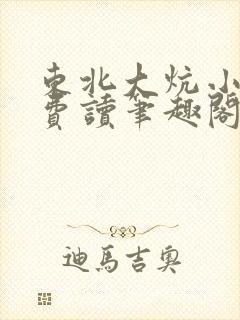 東北大炕小
費讀筆趣閣
迪馬吉奧